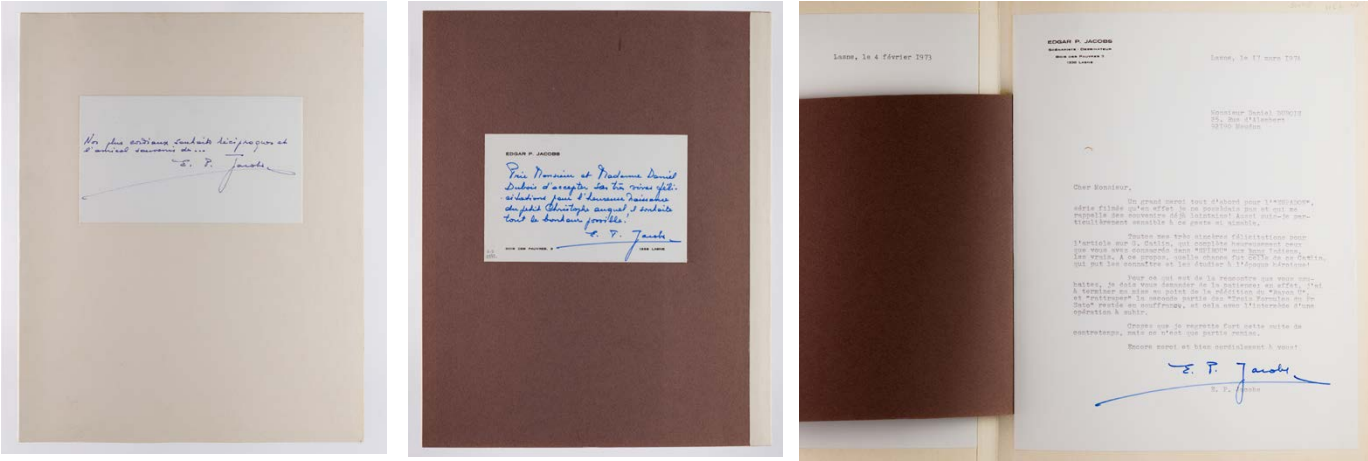 Nos plus cordiaux souhaits réciproques et
l'amical souvenir de...
E. P. Jacobs
EDGAR P. JACOBS
Prie Monsieur et Madame Daniel
Dubois d'accepter ses très vives féli-
citations pour l'heureuse naissance
du petit Christophe auquel il souhaite
tout le bonheur possible!
E. P. Jacobs
BOIS DES PAUVRES, 3 1328 LASNE
Lasne, le 4 février 1973
EDGAR P. JACOBS
SCÉNARISTE - DESSINATEUR
BOIS DES PAUVRES 3
1328 LASNE
Lasne, le 13 mars 1974
Monsieur Daniel DUBOIS
25, Rue d'Alembert
92190 Meudon
Cher Monsieur,
Un grand merci tout d'abord pour
série filmée qu'en effet je ne possédais pas et qui me
rappelle des souvenirs déjà lointains! Aussi suis-je par-
ticulièrement sensible à ce geste si aimable.
Toutes mes très sincères félicitations pour
l'article sur G. Catlin, qui complète heureusement ceux
que vous avez consacrés dans aux bons Indiens,
les vrais. A ce propos, quelle chance fut celle de ce Catlin,
qui put les connaître et les étudier à l'époque héroïque!
Pour ce qui est de la rencontre que vous sou-
haitez, je dois vous demander de la patience; en effet, j'ai
à terminer la mise au point de la réédition du "Rayon U",
et "rattraper" la seconde partie des "Trois Formules du Pr
Sato" restée en souffrance, et cela avec l'intermède d'une
opération à subir.
Croyez que je regrette fort cette suite de
contretemps, mais ce n'est que partie remise.
Encore merci et bien cordialement à vous!
E. P. Jacobs
E. P. Jacobs